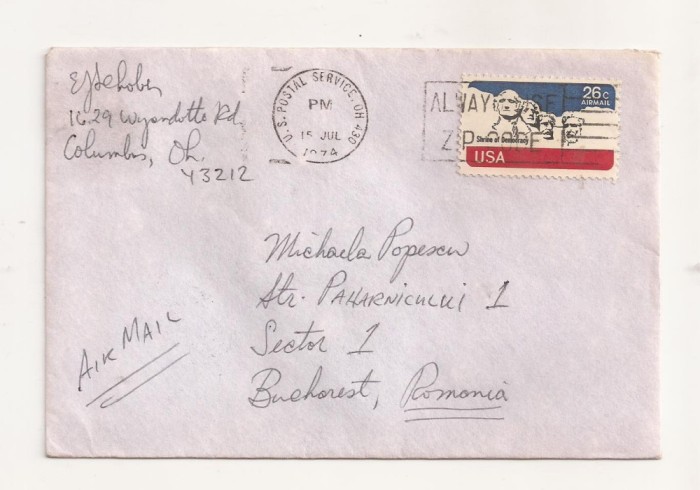 EJSchober
1629 Wyandotte Rd.
Columbus, Oh.
43212
U.S. POSTAL SERVICE, OH 430
PM
15 JUL
1974
ALWAYS USE
ZIP CODE
26c
AIRMAIL
Shrine of Democracy
USA
Michaela Popescu
Str. PAHARNICULUI 1
Sector 1
Bucharest, Romania
AIR MAIL